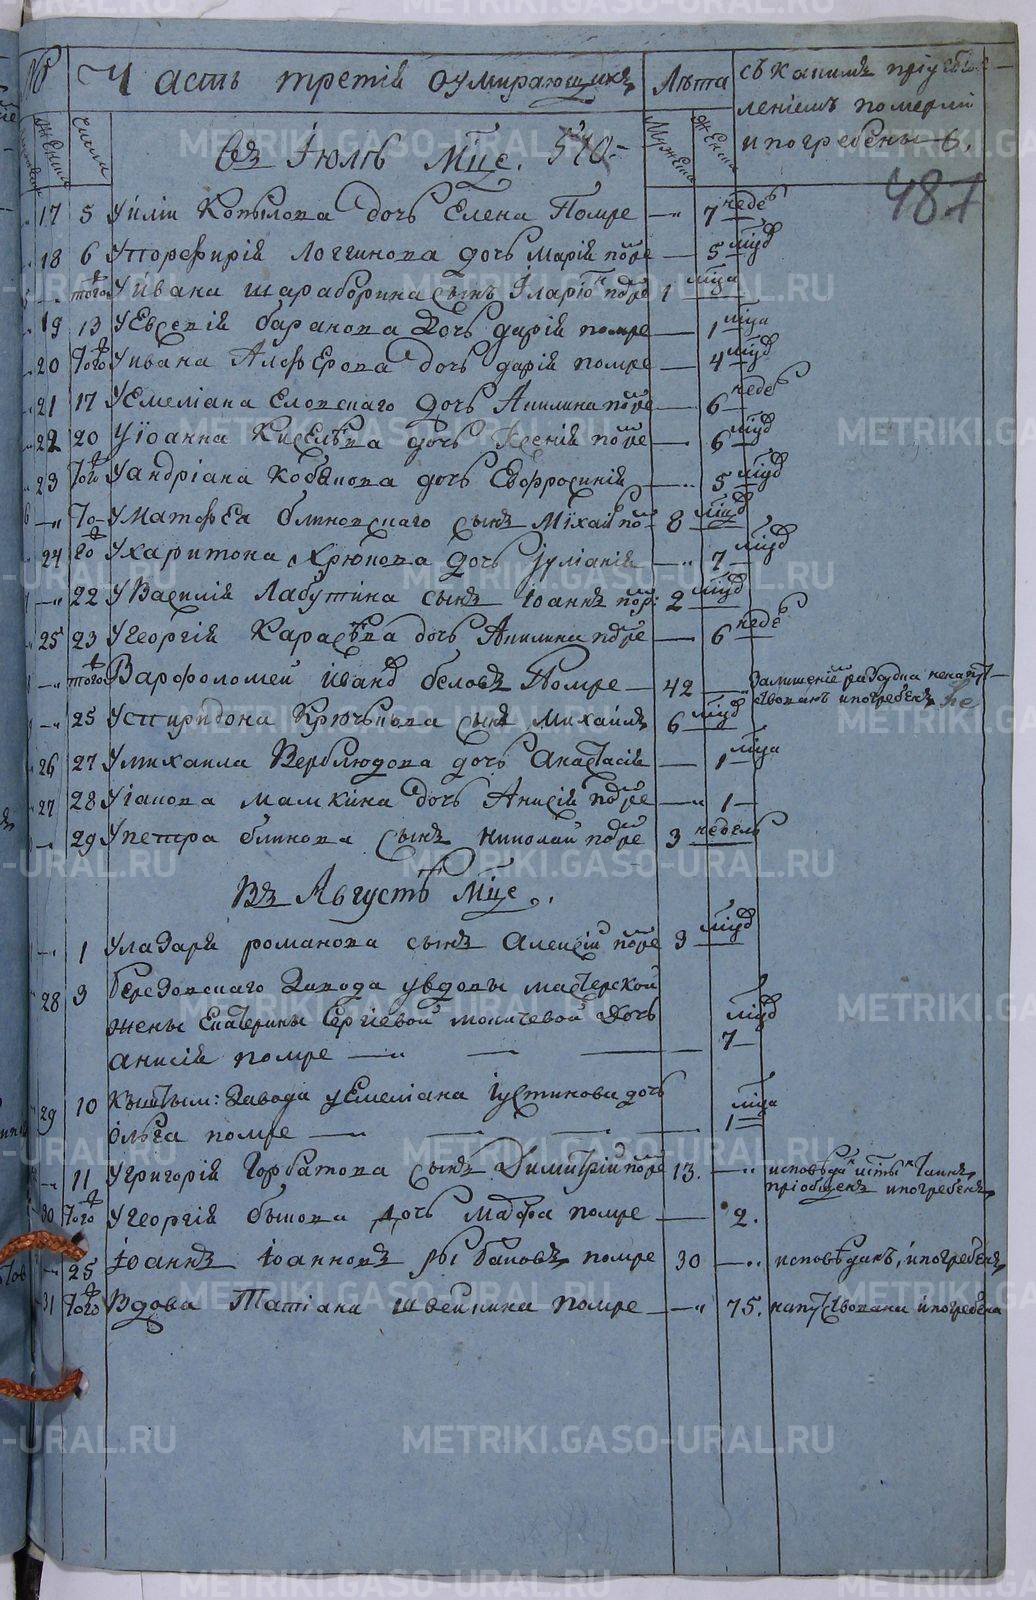 № Часть третія оумирающихъ Лѣта съ какимъ пріуготов-
леніемъ померли
и погребены
женска числа мужеска женска
Въ Іюлѣ мцѣ. 540.
481
17 5 У Иліи Копылова дочь Елена Помре — 7 недѣ
18 6 У Порфирія Логгинова дочь Марія помре — 5 мцд
того У Ивана Шараборина сынъ Іларіо помре 1 мца
19 13 У Евсевія Баранова Дочь Дарія помре — 1 мца
20 того У Ивана Алферова дочь Дарія помре — 4 мцд
21 17 У Емеліана Еловскаго Дочь Акилина помре — 6 недѣ
22 20 У Іоанна Киселѣва дочь Ксенія помре — 6 мцд
23 того У Андріана Кобыкова дочь Евфросинія — 5 мцд
То- У Матөея Блиновскаго сынъ Міхаи по- 8 мцд
24 го У Харитона Хрюкова дочь Іуліанія — 7 мцд
22 У Василія Лабутина сынъ Іоаннъ пом: 2 мцд
25 23 У Георгія Карасѣва дочь Акилина помре — 6 недѣ
того Варфоломей Иванд Беловъ Помре — 42
и погребенъ
25 У Спиридона Крючкова сынъ Михаилъ 6 мцд
26 27 У Михаила Верблюдова дочь Анастасія — 1 мца
27 28 У Іакова Мамкина дочь Анисія помре — 1 —
29 У Петра Блинова сынъ Николай помре 3 недель
Въ Августѣ Мцѣ.
1 У Лазаря Романова сынъ Алексій помре 3 мцд
28 3 Березовскаго Завода у вдовы мастерской
жены Екатерины Сергіевой Дочь
Анисія помре — 7 мцд
29 10 Кыштым: Завода у Емеліана Іустинова дочь
Ольга помре — 1 мца
11 У Григорія Горбатова сынъ Димитрій помре 13. исповѣд и ст таинъ
пріобщенъ и погребенъ
30 того У Георгія Быкова дочь Марфа помре — 2.
25 Іоаннъ Іоанновъ Рыбаковъ помре 30 — исповѣданъ, и погребенъ
31 того Вдова Татіана Швейкина помре — 75. напутствована и погребена
METRIKI.GASO-URAL.RU